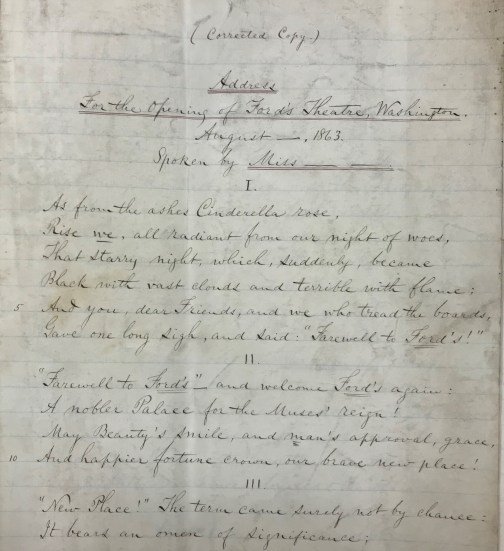 (Corrected Copy.)
Address
For the Opening of Ford's Theatre, Washington.
August —, 1863.
Spoken by Miss —— ——
I.
As from the ashes Cinderella rose,
Rise we, all radiant from our night of woes,
That starry night, which, suddenly, became
Black with vast clouds and terrible with flame:
5 And you, dear Friends, and we who tread the boards,
Gave one long sigh, and said: "Farewell to Ford's!"
II
"Farewell to Ford's" – and welcome Ford's again:
A nobler Palace for the Muses' reign!
May Beauty's smile, and man's approval, grace,
10 And happier fortune crown, our brave new place!
III
"New Place!" The term came surely not by chance:
It bears an omen of significance;